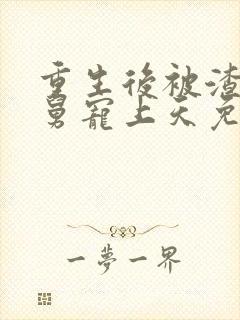 重生後被渣
舅寵上天免
一夢一界